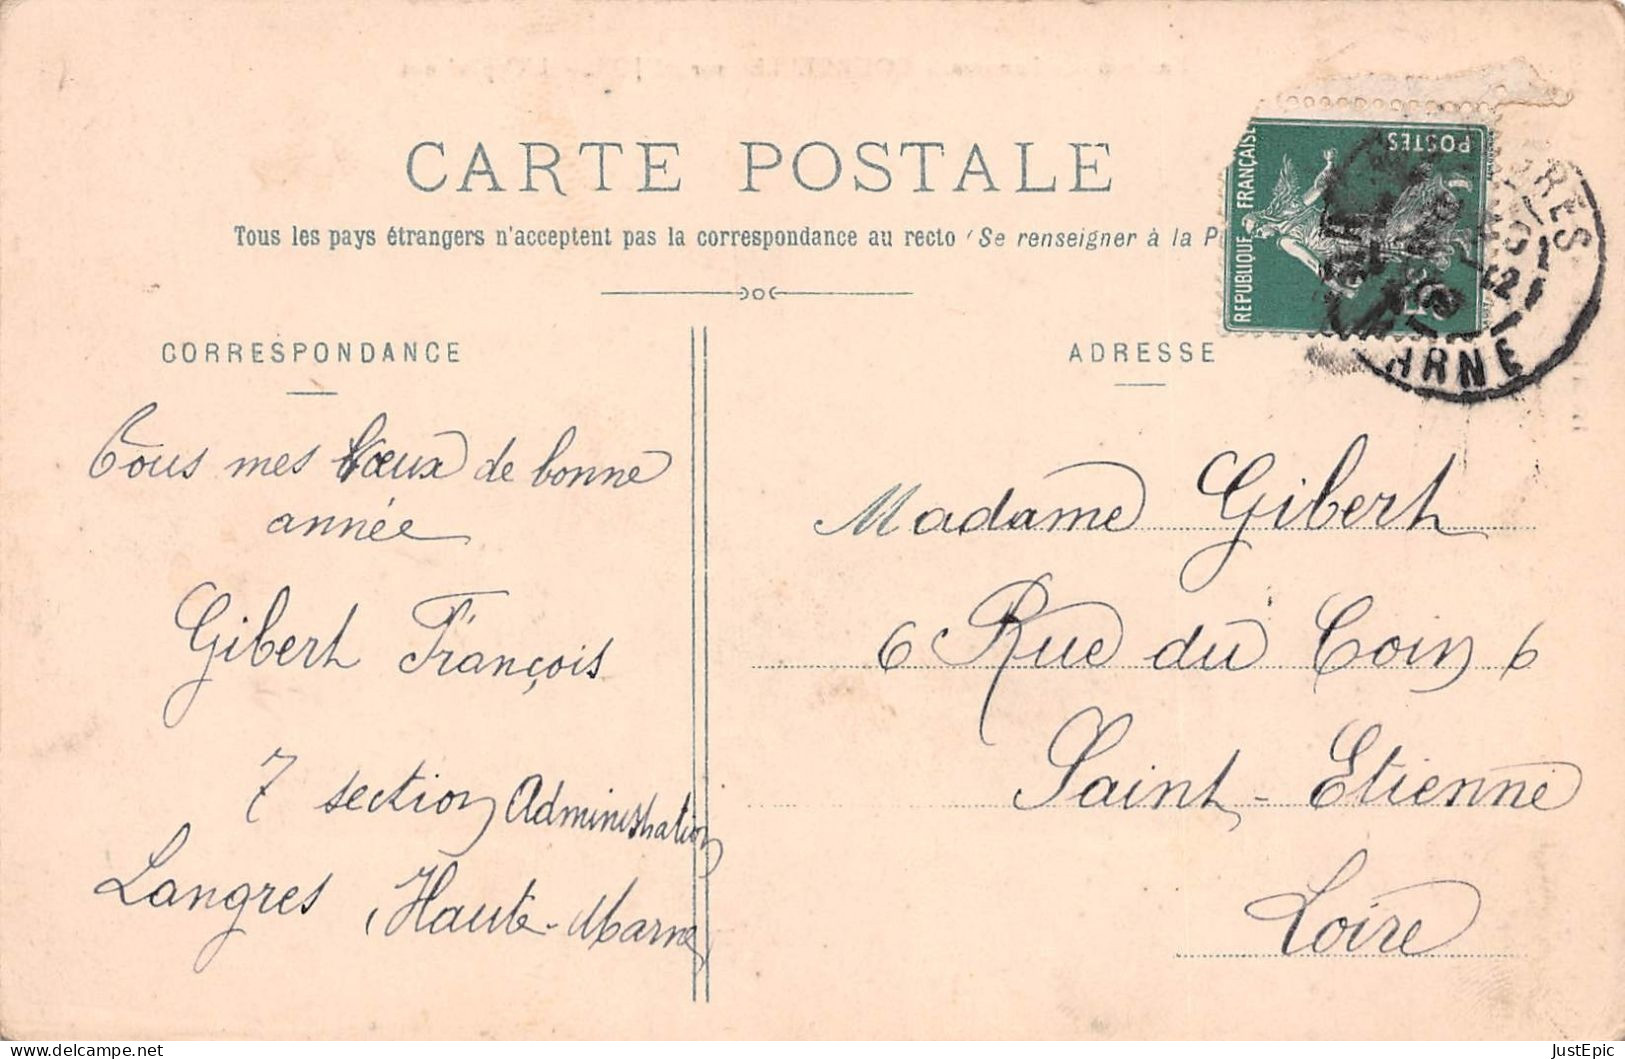 CARTE POSTALE
Tous les pays étrangers n'acceptent pas la correspondance au recto (Se renseigner à la P
REPUBLIQUE FRANÇAISE
POSTES
ARNE
CORRESPONDANCE
Tous mes Vœux de bonne
année
Gibert François
7 section Administration
Langres (Haute-Marne)
ADRESSE
Madame Gibert
6 Rue du Coin 6
Saint-Etienne
Loire
JustEpic